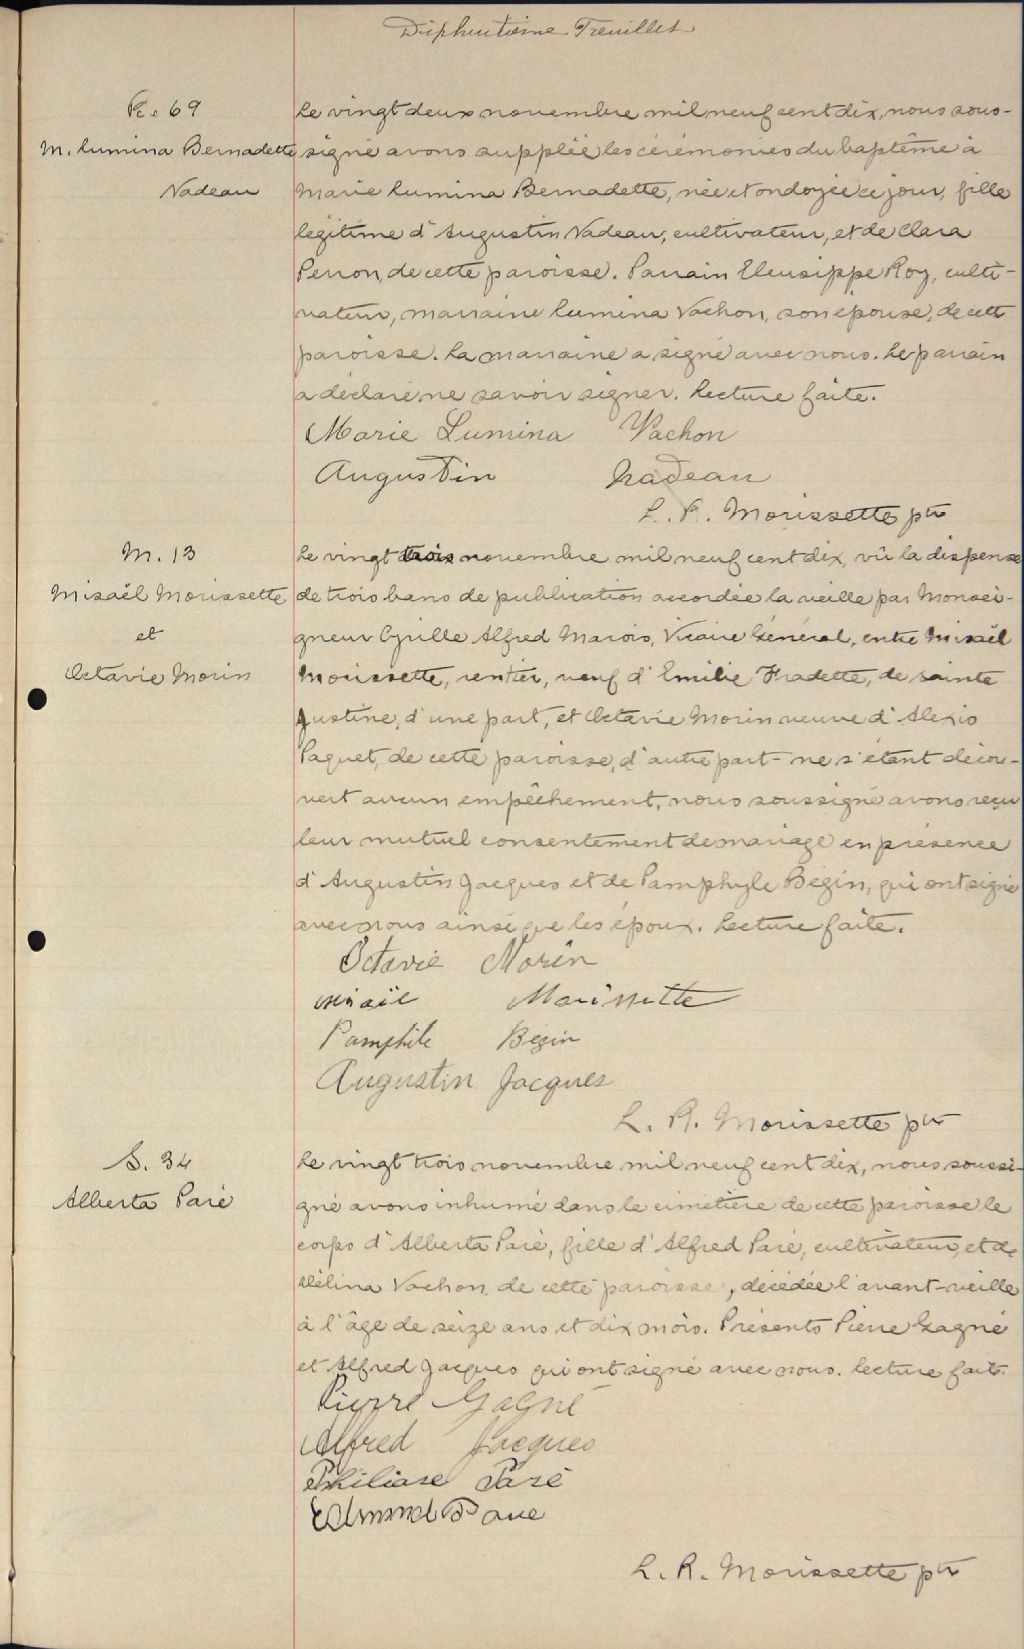 Dixhuitième Feuillet
B. 69
M. Lumina Bernadette
Nadeau
Le vingt deux novembre mil neuf cent dix, nous sous-
signé avons suppléé les cérémonies du baptême à
Marie Lumina Bernadette, née et ondoyée ce jour, fille
légitime d'Augustin Nadeau, cultivateur, et de Clara
Perron, de cette paroisse. Parrain Eleusippe Roy, culti-
vateur, marraine Lumina Vachon, son épouse, de cette
paroisse. La marraine a signé avec nous. Le parrain
a déclaré ne savoir signer. Lecture faite.
Marie Lumina Vachon
Augustin Nadeau
L. R. Morissette ptr
M. 13
Misaël Morissette
et
Octavie Morin
Le vingt trois novembre mil neuf cent dix, vû la dispense
de trois bans de publication accordée la veille par Monsei-
gneur Cyrille Alfred Marois, Vicaire Général, entre Misaël
Morissette, rentier, veuf d'Emilie Fradette, de sainte
Justine, d'une part, et Octavie Morin veuve d'Alexis
Paquet, de cette paroisse, d'autre part - ne s'étant décou-
vert aucun empêchement, nous soussigné avons reçu
leur mutuel consentement de mariage en présence
d'Augustin Jacques et de Pamphyle Bégin, qui ont signé
avec nous ainsi que les époux. Lecture faite.
Octavie Morin
Misaël Morissette
Pamphile Begin
Augustin Jacques
L. R. Morissette ptr
S. 34
Alberta Paré
Le vingt trois novembre mil neuf cent dix, nous soussi-
gné avons inhumé dans le cimetière de cette paroisse le
corps d'Alberta Paré, fille d'Alfred Paré, cultivateur, et de
Délina Vachon, de cette paroisse, décédée l'avant-veille
à l'âge de seize ans et dix mois. Présents Pierre Gagné
et Alfred Jacques qui ont signé avec nous. Lecture faite.
Pierre Gagné
Alfred Jacques
Philiase Paré
Edmond Pare
L. R. Morissette ptr